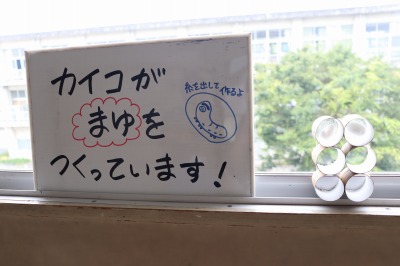 カイコが
まゆを
つくっています!
糸を出して作るよ